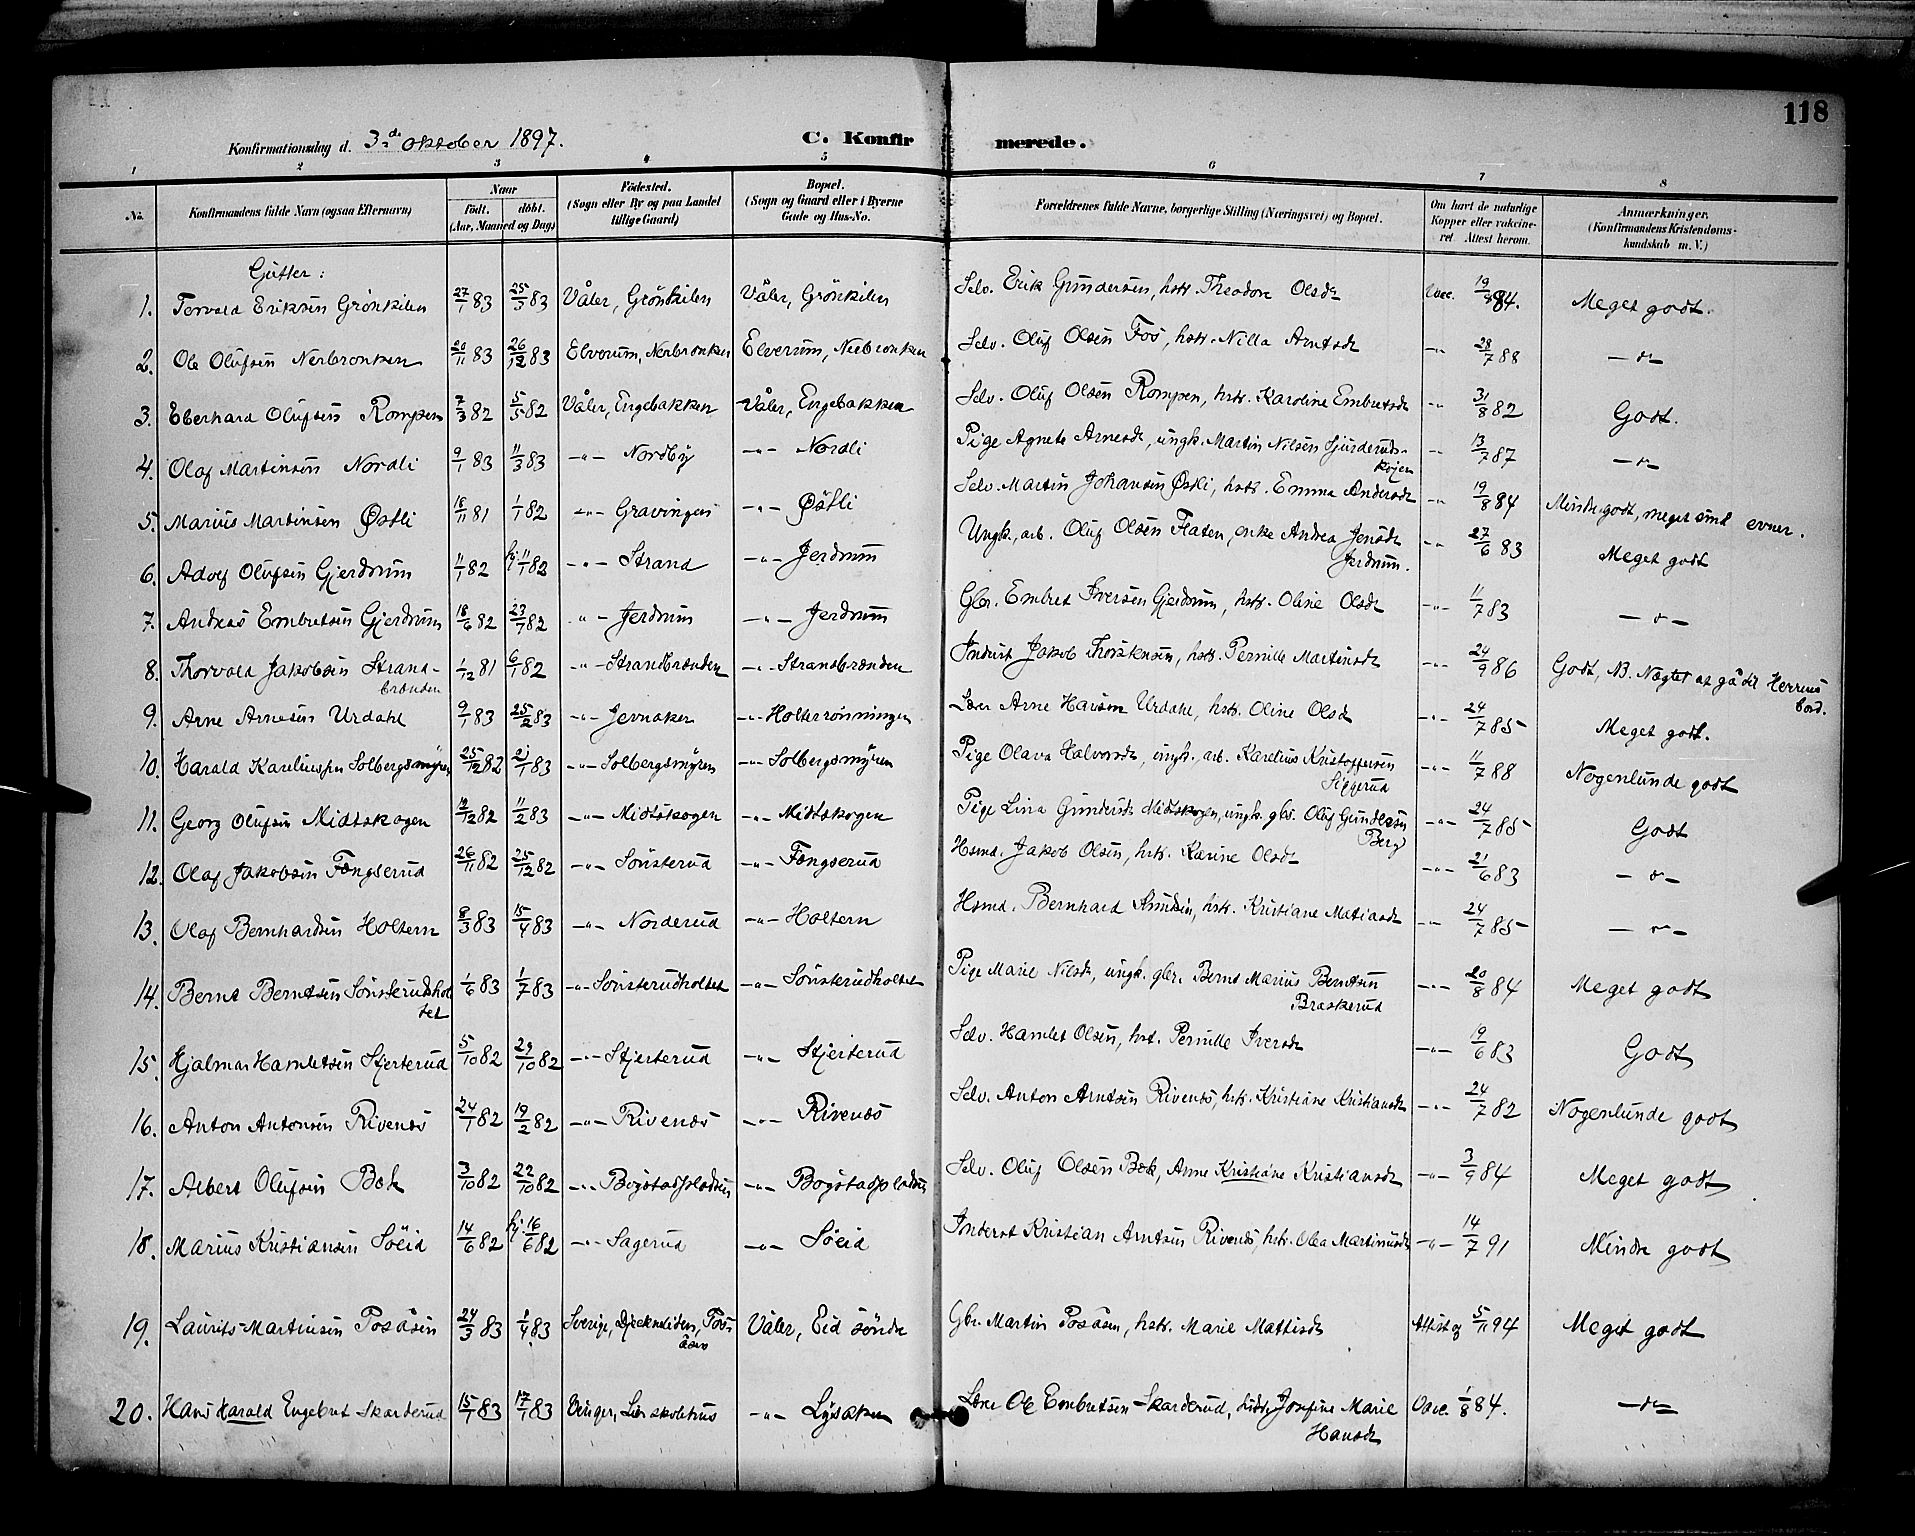 118
Konfirmationsdag d. 3d. oktober 1897. C. Konfirmerede.
1 2 3 4 5 6 7 8
No. Konfirmandens fulde Navn (ogsaa Efternavn) Naar født. døbt. (Aar, Maaned og Dag) Fødested. (Sogn eller By og paa Landet tillige Gaard) Bopæl. (Sogn og Gaard eller i Byerne Gade og Hus-No. Forældrenes fulde Navne, borgerlige Stilling (Næringsvei) og Bopæl. Om havt de naturlige Kopper eller vakcineret Attest herom. Anmærkninger. (Konfirmandens Kristendomskundskab m. V.)
Gutter:
1. Torvald Eriksen Grönkilen 27/1 83 25/3 83 Våler, Grönkilen Våler, Grönkilen Selv. Erik Gundersen, hstr. Theodora Olsdr Vacc. 19/8 84. Meget godt.
2. Ole Olufsen Nerbronken 20/11 83 26/12 83 Elverum, Nerbronken Elverum, Nerbronken Selv. Oluf Olsen Fos, hstr. Nilla Arntsdr -"- 28/7 88 -"-
3. Eberhard Olufsen Rompen 7/3 82 5/5 82 Våler, Engebakken Våler, Engebakken Selv. Oluf Olsen Rompen, hstr. Karoline Embretsdr -"- 31/8 82 Godt.
4. Olaf Martinsen Nordli 9/1 83 11/3 83 -"- Nordby -"- Nordli Pige Agnete Arnesdr, ungk. Martin Nilsen Gjurderuds-
kojen -"- 13/7 87 -"-
5. Marius Martinsen Østli 18/11 81 1/1 82 -"- Gravingen -"- Østli Selv. Martin Johansen Østli, hstr. Emma Andersdr -"- 19/8 84 Mindre godt, meget små evner.
6. Adolf Olufsen Gjerdrum 11/1 82 hj. 11/1 82 -"- Strand -"- Jerdrum Ungk., arb. Oluf Olsen Flaten, enke Andrea Jensdr
Jerdrum. -"- 27/6 83 Meget godt
7. Andreas Embretsen Gjerdrum 18/6 82 23/7 82 -"- Jerdrum -"- Jerdrum Gbr. Embret Iversen Gjerdrum, hstr. Oline Olsdr -"- 11/7 83 -"-
8. Thorvald Jakobsen Strand-
brænden 1/12 81 6/1 82 -"- Strandbrænden -"- Strandbrænden Inderst Jakob Thorstensen, hstr. Pernille Martinsdr -"- 24/9 86 Godt, NB. Nægtet at gå til Herrens
bord.
9. Arne Arnesen Urdahl 9/1 83 25/2 83 -"- Jevnaker -"- Holterrønningen Lærer Arne Hansen Urdahl, hstr. Oline Olsd -"- 24/7 85 Meget godt.
10. Harald Kareliussen Solbergsmyren 25/12 82 21/1 83 -"- Solbergsmyren -"- Solbergsmyren Pige Olava Halvorsdr, ungk. arb. Karelius Kristoffersen
Siggerud -"- 11/7 88 Nogenlunde godt
11. Georg Olufsen Midtskogen 12/12 82 11/2 83 -"- Midtskogen -"- Midtskogen Pige Lina Gundersdr Midtskogen, ungk. gbr. Oluf Gundersen
Berg -"- 24/7 85 Godt
12. Olaf Jakobsen Fængserud 26/11 82 25/12 82 -"- Sønsterud -"- Fængserud Hsmd. Jakob Olsen, hstr. Karine Olsdr -"- 21/6 83 -"-
13. Olaf Bernhardsen Holtern 8/3 83 15/4 83 -"- Norderud -"- Holtern Hsmd. Bernhard Amundsen, hstr. Kristiane Matiasdr -"- 24/7 85 -"-
14. Bernt Berntsen Sønsterudshol-
tet 1/6 83 1/7 83 -"- Sønsterudholtet -"- Sønsterudholtet Pige Marie Nilsdr, ungk. gbr. Bernt Marius Berntsen
Braskerud -"- 20/8 84 Meget godt
15. Hjalmar Hamletsen Stjerterud 5/10 82 29/10 82 -"- Stjerterud -"- Stjerterud Selv. Hamlet Olsen, hst. Pernille Iversdr -"- 19/6 83 Godt
16. Anton Antonsen Rivenæs 24/1 82 19/2 82 -"- Rivenæs -"- Rivenæs Selv. Anton Arntsen Rivenæs, hstr. Kristiane Kristiansdr -"- 24/7 82 Nogenlunde godt
17. Albert Olufsen Bæk 3/10 82 22/10 82 -"- Bogstadpladsen -"- Bogstadpladsen Selv. Oluf Olsen Bæk, Anne Kristiane Kristiansdr -"- 3/9 84 Meget godt
18. Marius Kristiansen Söeid 14/6 82 hj. 16/6 82 -"- Sagerud -"- Söeid Inderst Kristian Arntsen Rivenæs, hstr. Olea Martinusdr -"- 14/7 91 Mindre godt
19. Laurits Martinsen Posåsen 24/3 83 1/4 83 Sverige, Pos-
åsen Våler, Eid søndre Gbr. Martin Posåsen, hstr. Marie Mattisdr Attest af 5/11 94 Meget godt
20. Hans Harald Engebret Skarderud 15/1 83 17/1 83 Vinger, -"- Lysaker Lærer Ole Embretsen Skarderud, Josefine Marie
Hansdr Vacc. 1/8 84. -"-